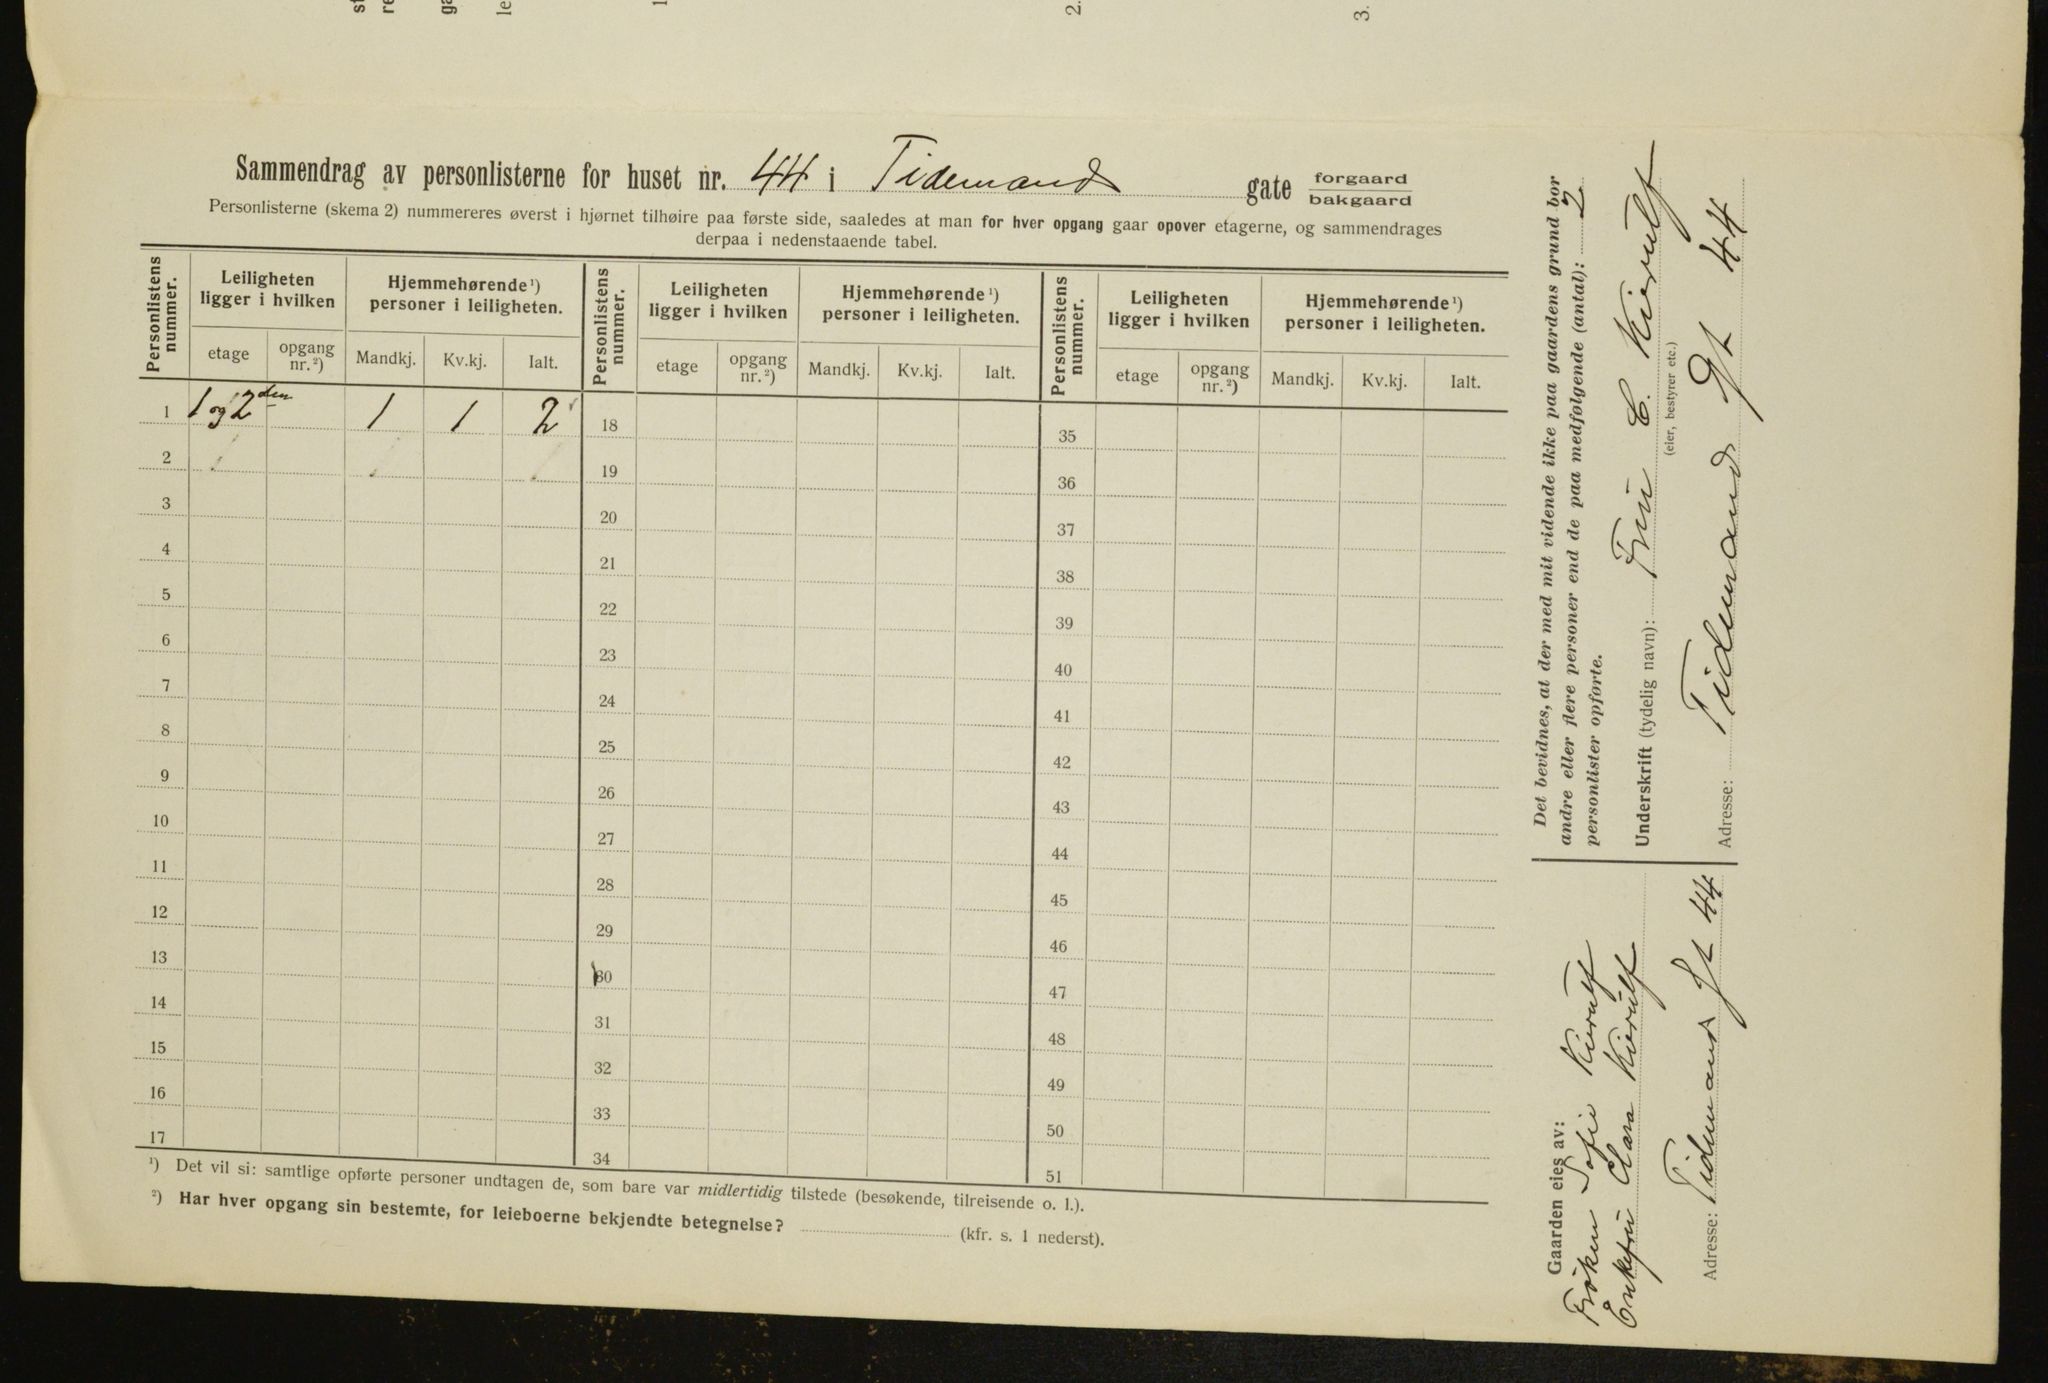 Sammendrag av personlisterne for huset nr. 44 i Tidemands gate forgaard
bakgaard
Personlisterne (skema 2) nummereres øverst i hjørnet tilhøire paa første side, saaledes at man for hver opgang gaar opover etagerne, og sammendrages
derpaa i nedenstaaende tabel.
Personlistens nummer. Leiligheten ligger i hvilken Hjemmehørende¹) personer i leiligheten. Personlistens nummer. Leiligheten ligger i hvilken Hjemmehørende¹) personer i leiligheten. Personlistens nummer. Leiligheten ligger i hvilken Hjemmehørende¹) personer i leiligheten.
etage opgang nr.²) Mandkj. Kv.kj. Ialt. etage opgang nr.²) Mandkj. Kv.kj. Ialt. etage opgang nr.²) Mandkj. Kv.kj. Ialt.
1 1 og 2den 1 1 2 18 35
2 19 36
3 20 37
4 21 38
5 22 39
6 23 40
7 24 41
8 25 42
9 26 43
10 27 44
11 28 45
12 29 46
13 30 47
14 31 48
15 32 49
16 33 50
17 34 51
¹) Det vil si: samtlige opførte personer undtagen de, som bare var midlertidig tilstede (besøkende, tilreisende o. l.).
²) Har hver opgang sin bestemte, for leieboerne bekjendte betegnelse? (kfr. s. 1 nederst).
Det bevidnes, at der med mit vidende ikke paa gaardens grund bor
andre eller flere personer end de paa medfølgende (antal): 2
personlister opførte.
Underskrift (tydelig navn): Fru C. Kierulf
(eier, bestyrer etc.)
Adresse: Tidemands Gt 44
Gaarden eies av:
Frøken Sofie Kierulf
Enkefru Clara Kierulf
Adresse: Tidemands Gt 44
2.
3.